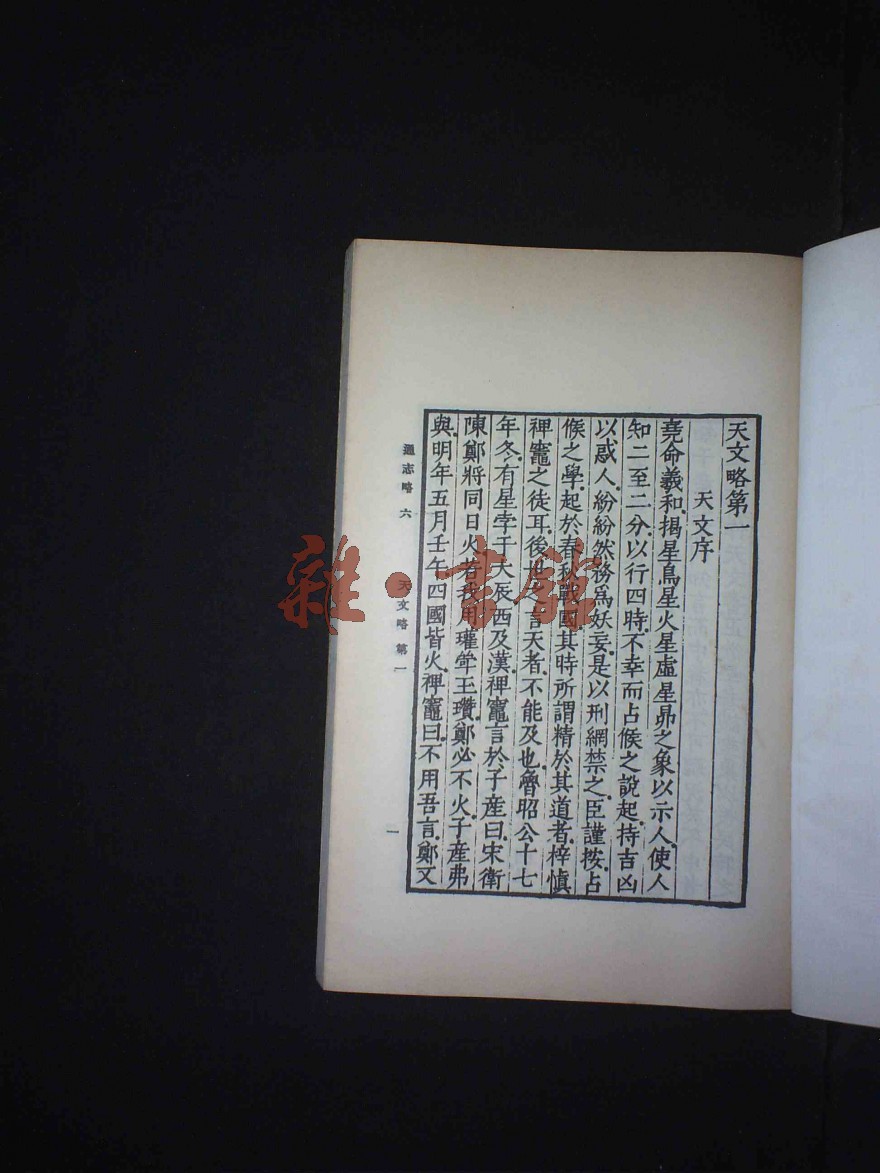 天文略第一
天文序
堯命羲和.揭星鳥星火星虛星昴之象以示人.使人
知二至二分.以行四時.不幸而占候之說起.持吉凶
以惑人.紛紛然務爲妖妄.是以刑網禁之.臣謹按.占
候之學.起於春秋戰國.其時所謂精於其道者.梓愼
禆竈之徒耳.後世之言天者.不能及也.魯昭公十七
年冬.有星孛于大辰.西及漢.禆竈言於子產曰.宋衛
陳鄭將同日火.若我用瓘斚玉瓚.鄭必不火.子產弗
與.明年五月壬午.四國皆火.禆竈曰.不用吾言.鄭又
通志略 六 天文略 第一
一
雜·書館